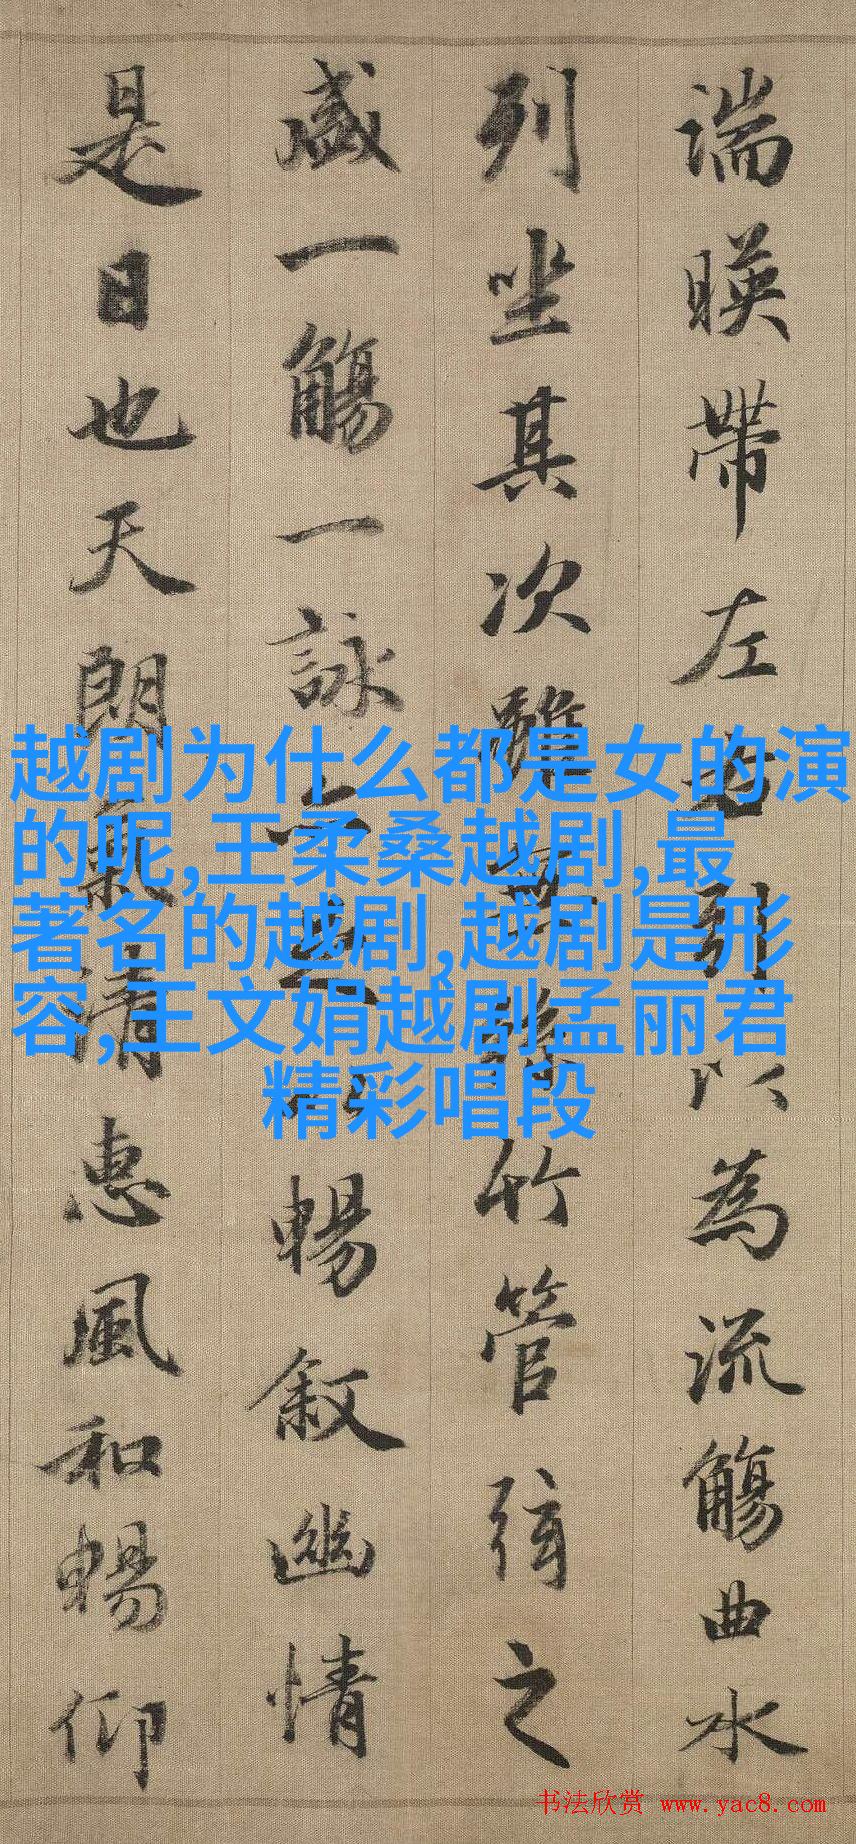 湍暎帶左右引以為流觴曲水
列坐其次雖無絲竹管弦之
盛一觴一詠亦足以暢叙幽情
是日也天朗氣清惠風和暢仰
越剧为什么都是女的演
的呢,王柔桑越剧,最
著名的越剧,越剧是形
容,王文娟越剧孟丽君
精彩唱段
书法欣赏 www.yac8.com